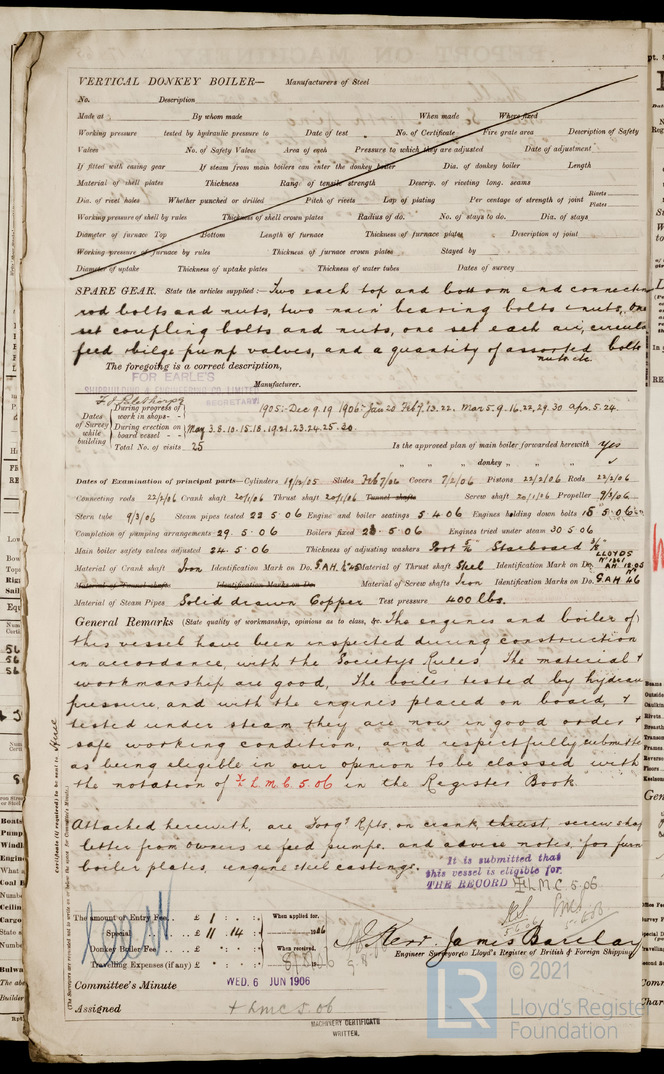 VERTICAL DONKEY BOILER— Manufacturers of Steel
No. Description
Made at By whom made When made Where fixed
Working pressure tested by hydraulic pressure to Date of test No. of Certificate Fire grate area Description of Safety
Valves No. of Safety Valves Area of each Pressure to which they are adjusted Date of adjustment
If fitted with easing gear If steam from main boilers can enter the donkey boiler Dia. of donkey boiler Length
Material of shell plates Thickness Range of tensile strength Descrip. of riveting long. seams
Dia. of rivet holes Whether punched or drilled Pitch of rivets Lap of plating Per centage of strength of joint Rivets Plates
Working pressure of shell by rules Thickness of shell crown plates Radius of do. No. of stays to do. Dia. of stays
Diameter of furnace Top Bottom Length of furnace Thickness of furnace plates Description of joint
Working pressure of furnace by rules Thickness of furnace crown plates Stayed by
Diameter of uptake Thickness of uptake plates Thickness of water tubes Dates of survey
SPARE GEAR. State the articles supplied:— Two each top and bottom end connecting
rod bolts and nuts, two main bearing bolts & nuts, one
set coupling bolts and nuts, one set each air, circula
feed & bilge pump valves, and a quantity of assorted bolts
nuts etc.
The foregoing is a correct description,
FOR EARLE'S
SHIPBUILDING & ENGINEERING CO. LIMITED Manufacturer.
SECRETARY
Dates of Survey while building
During progress of work in shops - - 1905:- Dec. 9. 19. 1906:- Jan 20. Feb 7. 13. 22. Mar 5. 9. 16. 22. 29. 30 Apr. 5. 24.
During erection on board vessel - - - May 3. 8. 10. 15. 18. 19. 21. 23. 24. 25. 30.
Total No. of visits 25 Is the approved plan of main boiler forwarded herewith yes
" " " donkey " " "
Dates of Examination of principal parts—Cylinders 19/12/05 Slides Feb 7/06 Covers 7/2/06 Pistons 22/2/06 Rods 22/2/06
Connecting rods 22/2/06 Crank shaft 20/1/06 Thrust shaft 20/1/06 Tunnel shafts Screw shaft 20/1/06 Propeller 9/3/06
Stern tube 9/3/06 Steam pipes tested 22 5 06 Engine and boiler seatings 5 4 06 Engines holding down bolts 15 5 06
Completion of pumping arrangements 29. 5. 06 Boilers fixed 23. 5. 06 Engines tried under steam 30 5 06
Main boiler safety valves adjusted 24. 5. 06 Thickness of adjusting washers Port 5/16 Starboard 3/8
Material of Crank shaft Iron Identification Mark on Do. G.A.H. Material of Thrust shaft Steel Identification Mark on Do. LLOYDS A.H. 12.05
Material of Tunnel shafts Identification Marks on Do. Material of Screw shafts Iron Identification Marks on Do. G.A.H 46
Material of Steam Pipes Solid drawn Copper Test pressure 400 lbs.
General Remarks (State quality of workmanship, opinions as to class, &c. The engines and boiler of
this vessel have been inspected during construction
in accordance, with the Societys Rules. The material &
workmanship are good, The boiler tested by hydrau
pressure, and with the engines placed on board, &
tested under steam they are now in good order &
safe working condition, and respectfully submitte
as being eligible in our opinion to be classed with
the notation of + L.M.C. 5.06 in the Register Book.
Attached herewith, are, Forgs Rpts. on crank, thrust, screw shaf
letter from owners re feed pumps. and advice notes, for furn
boiler plates, engine steel castings.
It is submitted that
this vessel is eligible for
THE RECORD + L.M.C. 5.06
The amount of Entry Fee . . £ 1 : : When applied for.
Special . . . . £ 11 : 14 : 1906
Donkey Boiler Fee . . . £ : : When received.
Travelling Expenses (if any) £ : :
James Barclay
Engineer Surveyors to Lloyd's Register of British & Foreign Shipping
Committee's Minute WED. 6 JUN 1906
Assigned + LMC 5.06
MACHINERY CERTIFICATE
WRITTEN.
© 2021
LR
Lloyd's Register
Foundation